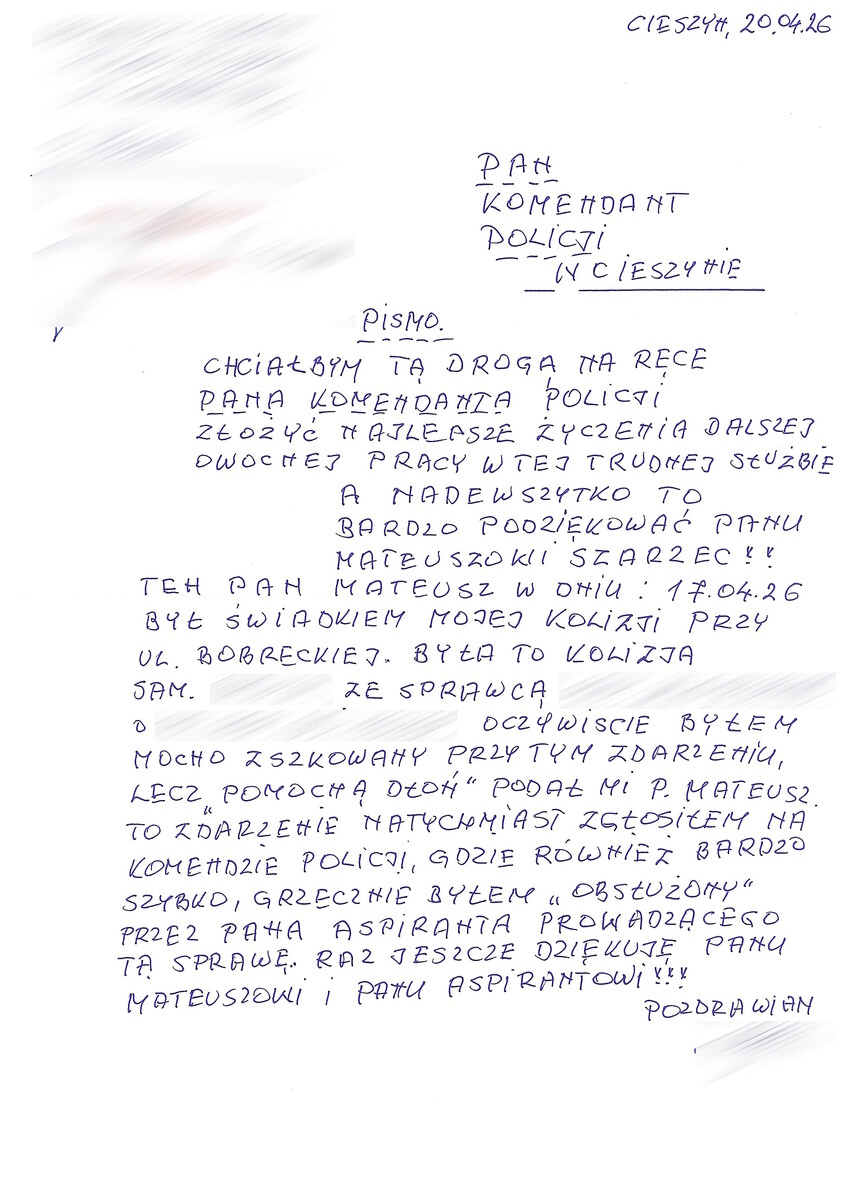 CIESZYN, 20.04.26
PAN
KOMENDANT
POLICJI
W CIESZYNIE
PISMO.
CHCIAŁBYM TĄ DROGĄ NA RĘCE
PANA KOMENDANTA POLICJI
ZŁOŻYĆ NAJLEPSZE ŻYCZENIA DALSZEJ
OWOCNEJ PRACY W TEJ TRUDNEJ SŁUŻBIE
A NADEWSZYTKO TO
BARDZO PODZIĘKOWAĆ PANU
MATEUSZOWI SZARZEC!!
TEN PAN MATEUSZ W DNIU: 17.04.26
BYŁ ŚWIADKIEM MOJEJ KOLIZJI PRZY
UL. BOBRECKIEJ. BYŁA TO KOLIZJA
SAM. ZE SPRAWCĄ
O OCZYWIŚCIE BYŁEM
MOCNO ZSZKOWANY PRZY TYM ZDARZENIU,
LECZ „POMOCNĄ DŁOŃ" PODAŁ MI P. MATEUSZ.
TO ZDARZENIE NATYCHMIAST ZGŁOSIŁEM NA
KOMENDZIE POLICJI, GDZIE RÓWNIEŻ BARDZO
SZYBKO, GRZECZNIE BYŁEM „OBSŁUŻONY"
PRZEZ PANA ASPIRANTA PROWADZĄCEGO
TĄ SPRAWĘ. RAZ JESZCZE DZIĘKUJĘ PANU
MATEUSZOWI I PANU ASPIRANTOWI!!!
POZDRAWIAM